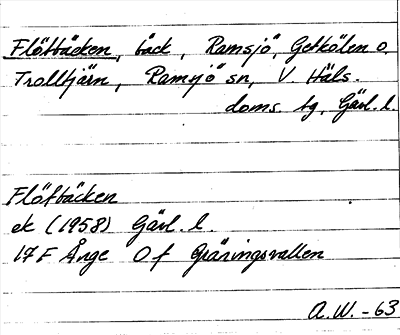 Flötbäcken, bäck, Ramsjö, Getkölen o.
Trolltjärn, Ramsjö sn, V. Häls.
doms. bg, Gävl. l.
Flötbäcken
ek (1958) Gävl. l.
17 F Ånge 0 f Gräningsvallen
A.W. - 63